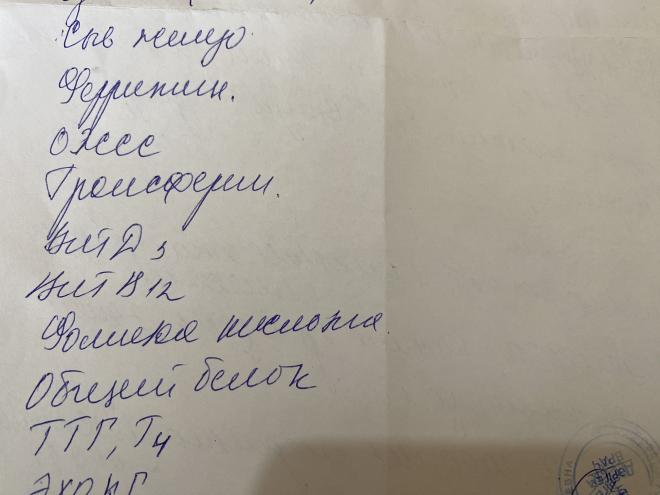 Сыв железо
Ферритин.
ОЖСС
Трансферин.
Вит Д3
Вит В12
Фолиевая кислота
Общий белок
ТТГ, Т4
ЭХОКГ
ВРАЧ